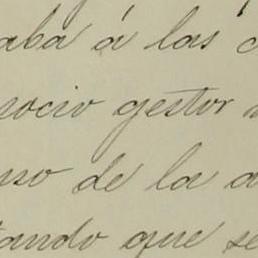 aba á las
socio gestor
uso de la
tando que se